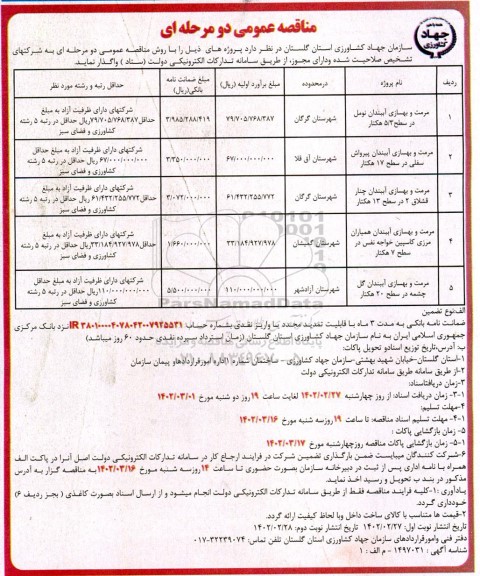 جهاد کشاورزی
مناقصه عمومی دو مرحله ای
سازمان جهاد کشاورزی استان گلستان در نظر دارد پروژه های ذیل را با روش مناقصه عمومی دو مرحله ای به شرکتهای
تشخیص صلاحیت شده ودارای مجوز، از طریق سامانه تدارکات الکترونیکی دولت (ستاد) واگذار نماید.
ردیف نام پروژه درمحدوده مبلغ برآورد اولیه (ریال) مبلغ ضمانت نامه بانکی(ریال) حداقل رتبه و رشته مورد نظر
۱ مرمت و بهسازی آببندان نومل در سطح ۵/۳ هکتار شهرستان گرگان ۷۹/۷۰۵/۷۶۸/۳۸۷ ۳/۹۸۵/۲۸۸/۴۱۹ شرکتهای دارای ظرفیت آزاد به مبلغ حداقل ۷۹/۷۰۵/۷۶۸/۳۸۷ ریال حداقل در رتبه ۵ رشته کشاورزی و فضای سبز
۲ مرمت و بهسازی آببندان پیرواش سفلی در سطح ۱۷ هکتار شهرستان آق قلا ۶۷/۰۰۰/۰۰۰/۰۰۰ ۳/۳۵۰/۰۰۰/۰۰۰ شرکتهای دارای ظرفیت آزاد به مبلغ حداقل ۶۷/۰۰۰/۰۰۰/۰۰۰ ریال حداقل در رتبه ۵ رشته کشاورزی و فضای سبز
۳ مرمت و بهسازی آببندان چنار قشلاق ۲ در سطح ۱۳ هکتار شهرستان گرگان ۶۱/۴۳۲/۲۵۵/۷۷۲ ۳/۰۷۲/۰۰۰/۰۰۰ شرکتهای دارای ظرفیت آزاد به مبلغ حداقل ۶۱/۴۳۲/۲۵۵/۷۷۲ ریال حداقل در رتبه ۵ رشته کشاورزی و فضای سبز
۴ مرمت و بهسازی آببندان همیاران مرزی کاسپین خواجه نفس در سطح ۷ هکتار شهرستان گمیشان ۳۳/۱۸۴/۹۲۷/۹۷۸ ۱/۶۶۰/۰۰۰/۰۰۰ شرکتهای دارای ظرفیت آزاد به مبلغ حداقل ۳۳/۱۸۴/۹۲۷/۹۷۸ ریال حداقل در رتبه ۵ رشته کشاورزی و فضای سبز
۵ مرمت و بهسازی آببندان گل چشمه در سطح ۲۰ هکتار شهرستان آزادشهر ۱۱۰/۰۰۰/۰۰۰/۰۰۰ ۵/۵۰۰/۰۰۰/۰۰۰ شرکتهای دارای ظرفیت آزاد به مبلغ حداقل ۱۱۰/۰۰۰/۰۰۰/۰۰۰ ریال حداقل در رتبه ۵ رشته کشاورزی و فضای سبز
ParsNamadData
الف:نوع تضمین
ضمانت نامه بانکی به مدت ۳ ماه با قابلیت تمدید مجدد یا واریز نقدی بشماره حساب IR ۳۸۰۱۰۰۰۰۴۰۷۸۰۴۲۰۰۷۹۳۵۵۳۱ نزد بانک مرکزی
جمهوری اسلامی ایران به نام سازمان جهاد کشاورزی استان گلستان (زمان استرداد سپرده نقدی حدود ۶۰ روز میباشد)
ب :آدرس،تاریخ توزیع اسنادو تحویل پاکات:
۱-استان گلستان-خیابان شهید بهشتی-سازمان جهاد کشاورزی – ساختمان شماره ۱(اداره امورقراردادهاو پیمان سازمان
۲-از طریق سامانه طریق سامانه تدارکات الکترونیکی دولت
۳-زمان دریافتاسناد:
۳-۱- زمان دریافت اسناد: از روز چهارشنبه ۱۴۰۲/۰۲/۲۷ لغایت ساعت ۱۹ روز دو شنبه مورخ ۱۴۰۲/۰۳/۰۱
۴-مهلت تسلیم:
۴-۱- مهلت تسلیم اسناد مناقصه: تا ساعت ۱۹ روزسه شنبه مورخ ۱۴۰۲/۰۳/۱۶
۵- زمان بازگشایی پاکات :
۵-۱- زمان بازگشایی پاکات مناقصه روزچهارشنبه مورخ ۱۴۰۲/۰۳/۱۷
۶-شرکت کنندگان میبایست ضمن بارگذاری تضمین شرکت در فرایند ارجاع کار در سامانه تدارکات الکترونیکی دولت اصل آنرا در پاکت الف
همراه با نامه اداری پس از ثبت در دبیرخانه سازمان بصورت حضوری تا ساعت ۱۴ روزسه شنبه مورخ ۱۴۰۲/۰۳/۱۶ به مناقصه گزار به آدرس
مذکور در بند ب تحویل و رسید اخذ نمایند.
یادآوری :۱-کلیه فرایند مناقصه فقط از طریق سامانه تدارکات الکترونیکی دولت انجام میشود و از ارسال اسناد بصورت کاغذی ( بجز ردیف ۶)
خودداری گردد.
۲-قیمت ها متناسب با کالای ساخت داخل وبا لحاظ کیفیت ارائه گردد.
تاریخ انتشار نوبت اول: ۱۴۰۲/۰۲/۲۷ تاریخ انتشار نوبت دوم: ۱۴۰۲/۰۲/۲۸
دفتر فنی وامورقراردادهای سازمان جهاد کشاورزی استان گلستان تلفن تماس: ۳۲۲۳۹۰۷۴-۰۱۷
شناسه آگهی : ۱۴۹۷۰۳۱ - م الف : ۱